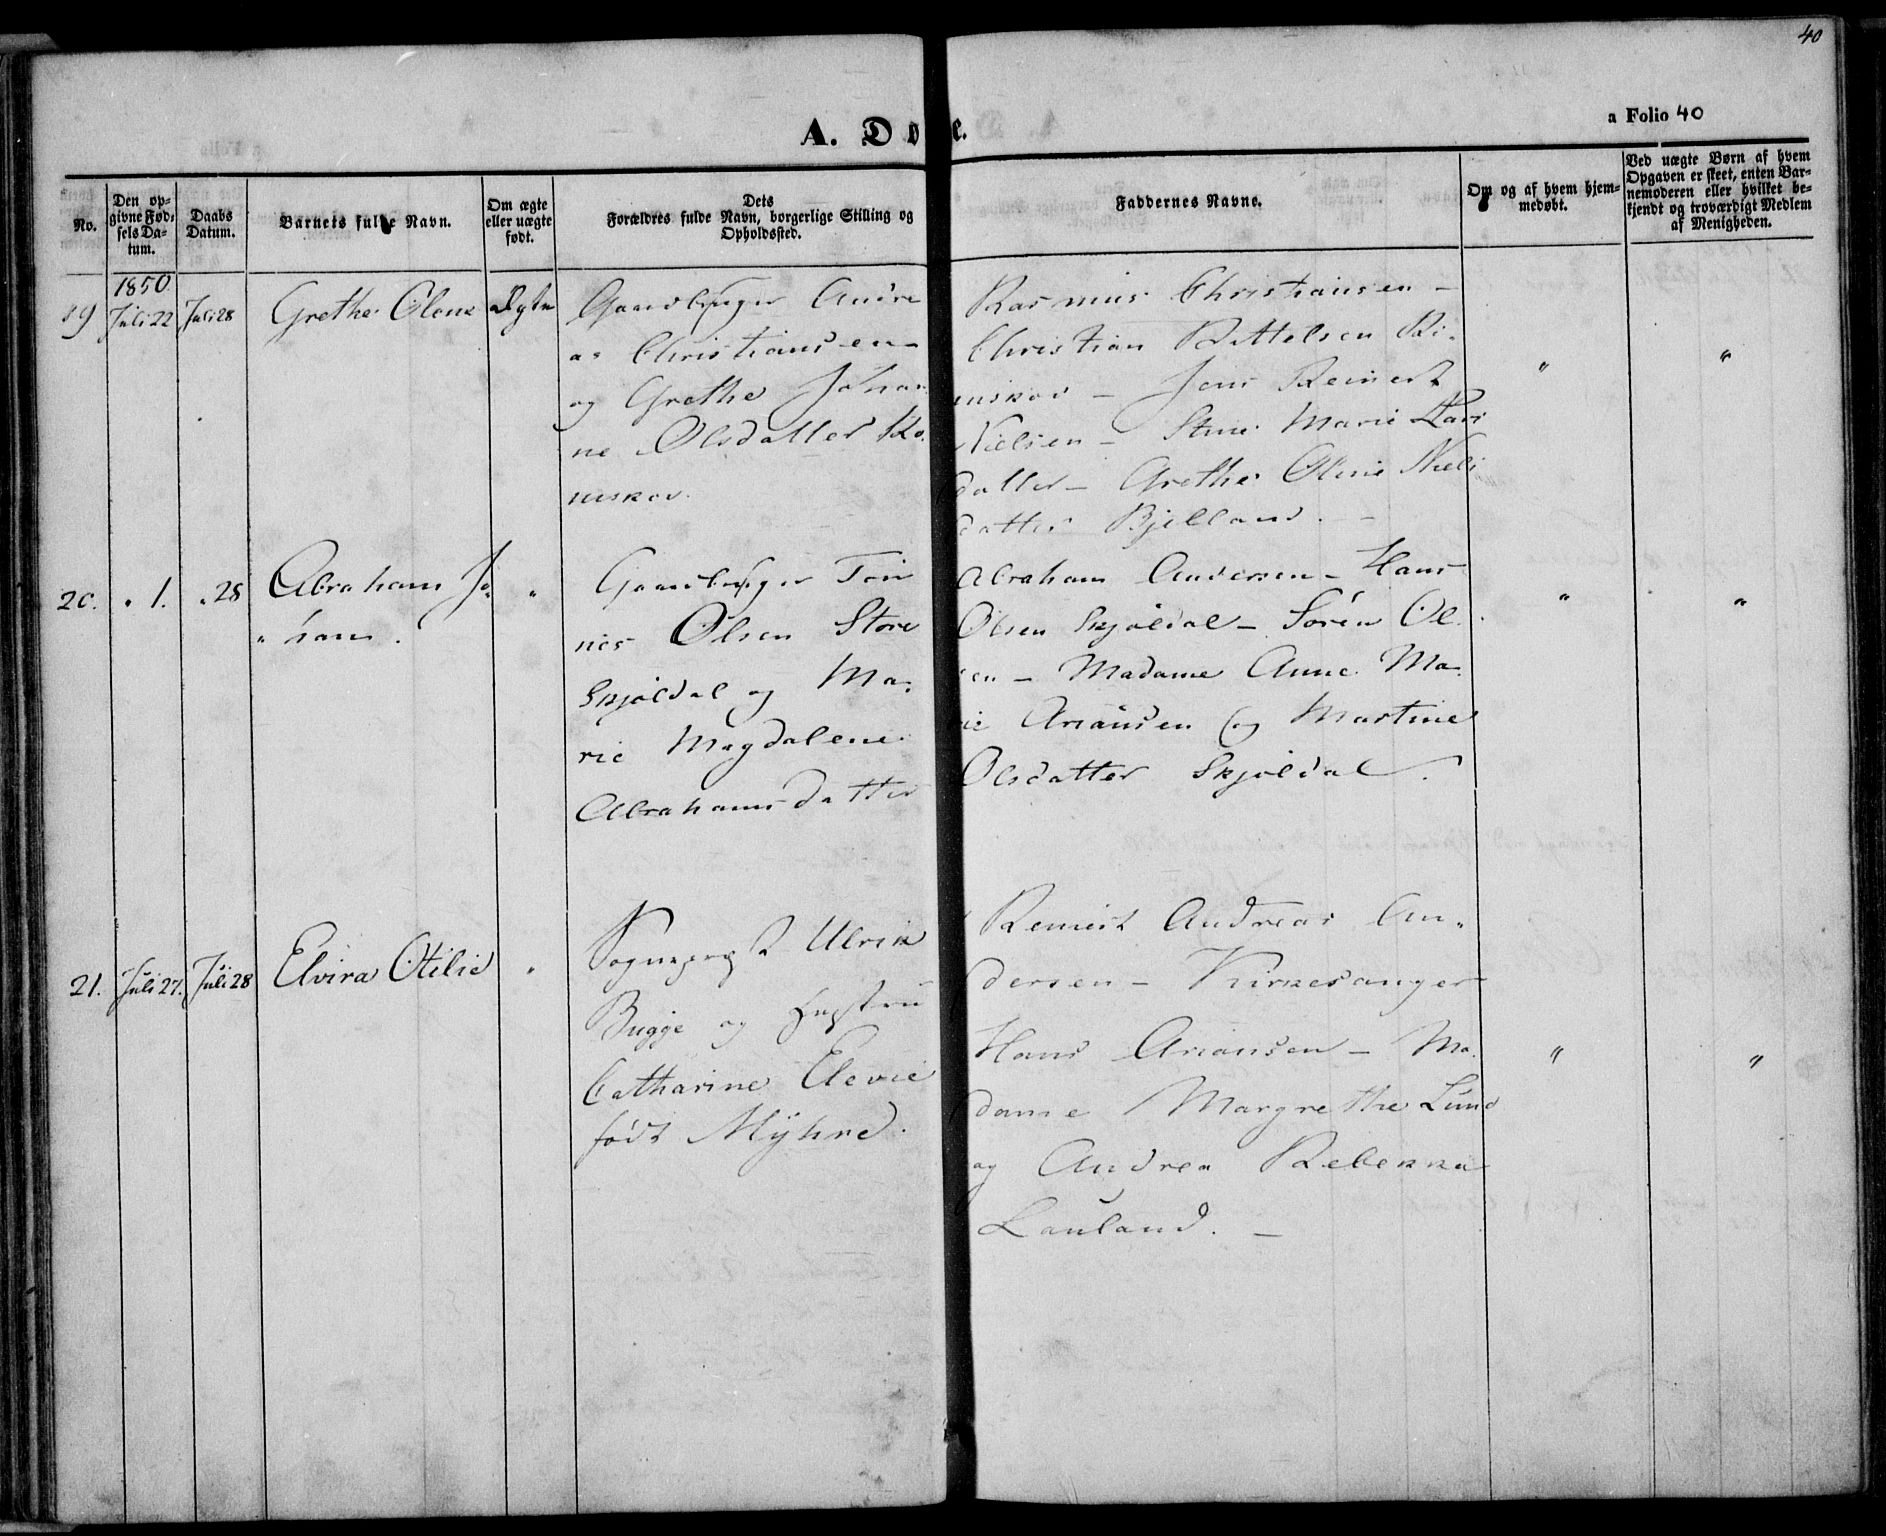 40
A. Dø e.
a Folio 40
No.
Den op-
givne Fød-
sels Da-
tum.
Daabs
Datum.
Barnets fulde Navn.
Om ægte
eller uægte
født.
Dets
Forældres fulde Navn, borgerlige Stilling og
Opholdssted.
Faddernes Navne.
Om og af hvem hjem-
medøbt.
Ved uægte Børn af hvem
Opgaven er skeet, enten Bar-
nemoderen eller hvilket be-
kjendt og troværdigt Medlem
af Menigheden.
1850
19
Juli 22
Juli 28
Grethe Olene
Ægte
Gaardbruger Andre
as Christiansen
og Grethe Johan
ne Olsdatter Ro
niskov.
Rasmus Christiansen -
Christian Rettelsen Ri-
niskov - Jens Reinert
Nielsen - Stine Marie Lars
datter - Grethe Olene Niels
datter Bjelland. -
"
"
20.
" 1.
" 28
Abraham Jo-
" han.
"
Gaardbruger Tøn
nes Olsen Store
Skjøldal og Ma-
rie Magdalene
Abrahamsdatter
Abraham Andersen - Hans
Olsen Skjøldal - Søren Ol-
sen - Madame Anne Ma-
rie Ariansen og Martine
Olsdatter Skjøldal.
"
"
21.
Juli 27.
Juli 28
Elvira Otilie
"
Sognepræst Ulrik
Bugge og Hustru
Catharine Elevie
født Myhre.
Reinert Andreas An-
dersen - Kirkesanger
Hans Ariansen - Ma-
dame Margrethe Lund
og Andrea Rebekka
Lauland. -
"
"